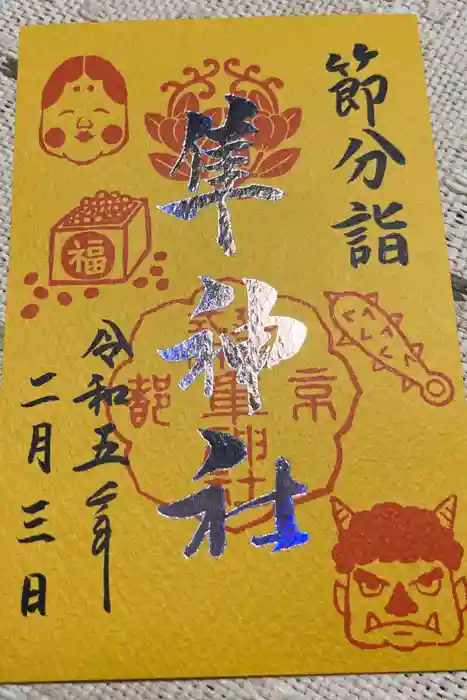 節分詣
隼神社
令和五年
二月三日
福
京都
隼神社